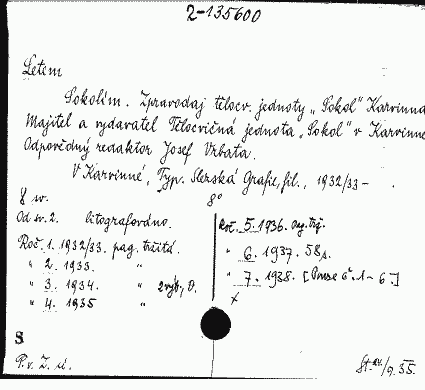 2-135600
Letem
Sokolím. Zpravodaj tělocv. jednoty „Sokol" Karvinná
Majitel a vydavatel Tělocvičná jednota „Sokol" v Karvinné
Odpovědný redaktor Josef Vrbata.
V Karvinné, Typ. Slezská Grafie, fil., 1932/33 - .
8 sv. 8°
Od sv. 2. litografováno.
Roč. 1. 1932/33. pag.
" 2. 1933. "
" 3. 1934. "
" 4. 1935 "
Roč. 5. 1936.
" 6. 1937. 58 s.
" 7. 1938. [Pouze č. 1-6.]
x
8
P. v. Z. ú.
/9. 35.